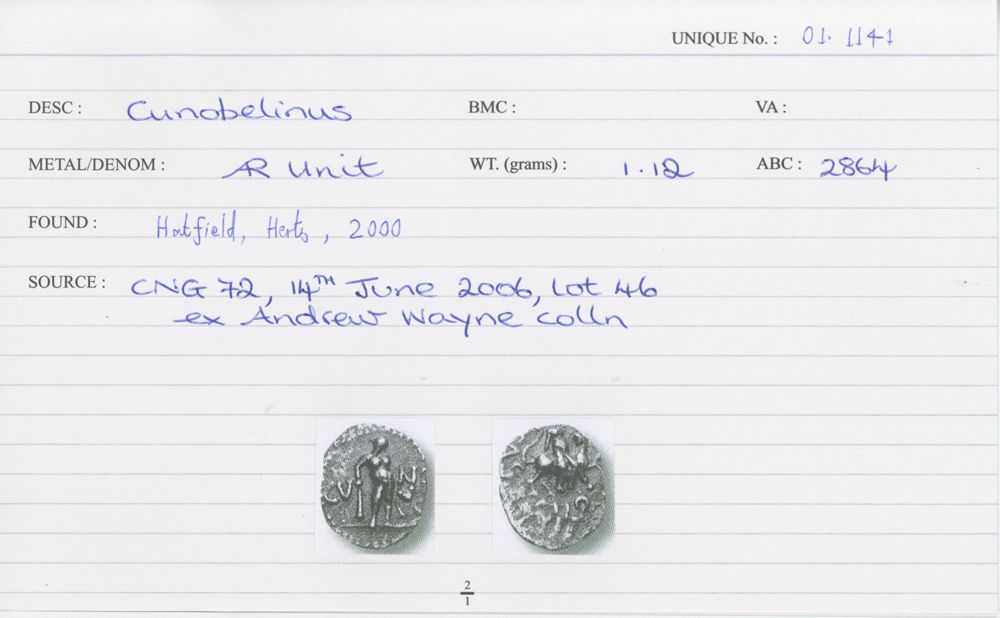 UNIQUE No. : 01. 1141
DESC : Cunobelinus BMC : VA :
METAL/DENOM : AR Unit WT. (grams) : 1.12 ABC : 2864
FOUND : Hatfield, Herts, 2000
SOURCE : CNG 72, 14TH June 2006, Lot 46
ex Andrew Wayne colln
CV N
2
1